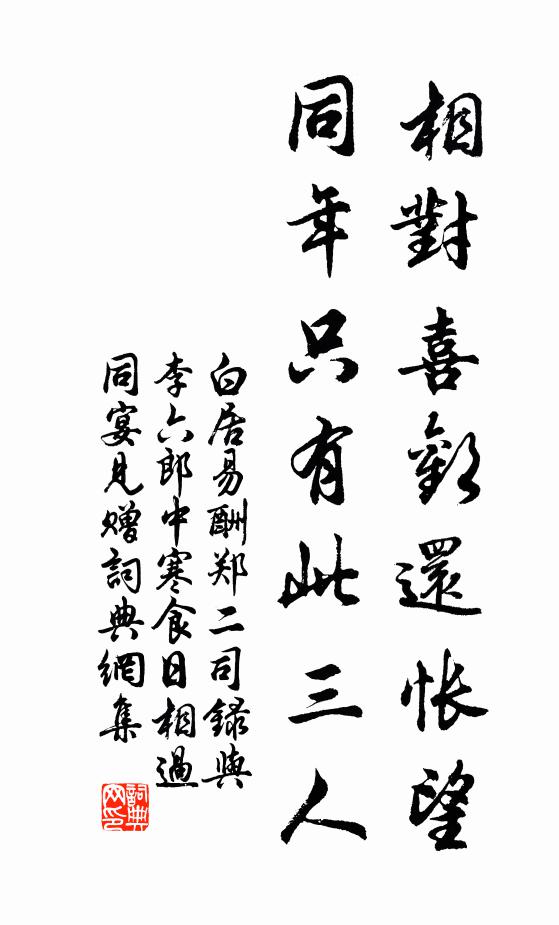 相對喜歡還怅望
同年只有此三人
白居易酬郑二司錄與
李六郎中寒食日相過
同宴見赠詞典網集
詞典
网印